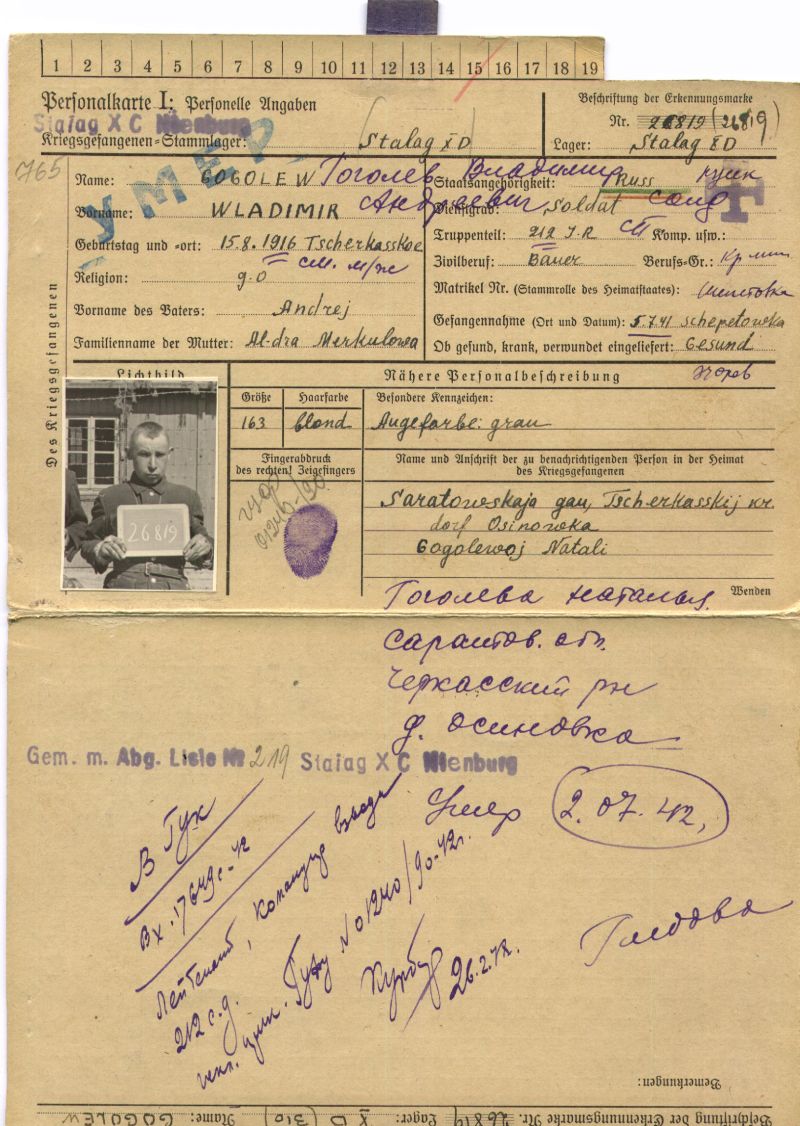 1 2 3 4 5 6 7 8 9 10 11 12 13 14 15 16 17 18 19
Personalkarte I: Personelle Angaben
Beschriftung der Erkennungsmarke
Stalag X C Nienburg
Nr. 26819 (26819)
Kriegsgefangenen=Stammlager: Stalag XD
Lager: Stalag XD
УМЕР
Des Kriegsgefangenen
Name: GOGOLEW Гоголев Владимир
Staatsangehörigkeit: Russ
Vorname: WLADIMIR Андреевич
Dienstgrad: Soldat солд
Geburtstag und =ort: 15.8.1916 Tscherkasskoe
Truppenteil: 212 J.R Komp. usw.:
Religion: g.o см. м/ж
Zivilberuf: Bauer Berufs=Gr.:
Matrikel Nr. (Stammrolle des Heimatstaates): Шепетовка
Vorname des Vaters: Andrej
Gefangennahme (Ort und Datum): 5.7.41 Schepetowka
Familienname der Mutter: Al-dra Merkulowa
Ob gesund, krank, verwundet eingeliefert: Gesund
Lichtbild
Nähere Personalbeschreibung
Größe Haarfarbe Besondere Kennzeichen:
163 blond Augefarbe: grau
26819
Fingerabdruck
des rechten! Zeigefingers
Name und Anschrift der zu benachrichtigenden Person in der Heimat
des Kriegsgefangenen
Saratowskaja gau, Tscherkasskij kr.
dorf Osinowka
Gogolewoj Natali
Wenden
Гоголева Наталья
Саратов. обл.
Черкасский рн
д. Осиновка
Gem. m. Abg. Liste Nr 219 Stalag X C Nienburg
Умер 2.07.42,
В ГУК
Вх. 17649с-42
Лейтенант, командир взвода
212 с.д.
No 01240/90-42г.
Bemerkungen:
Beschriftung der Erkennungsmarke Nr. 26819 Lager: XD (310) Name: GOGOLEW